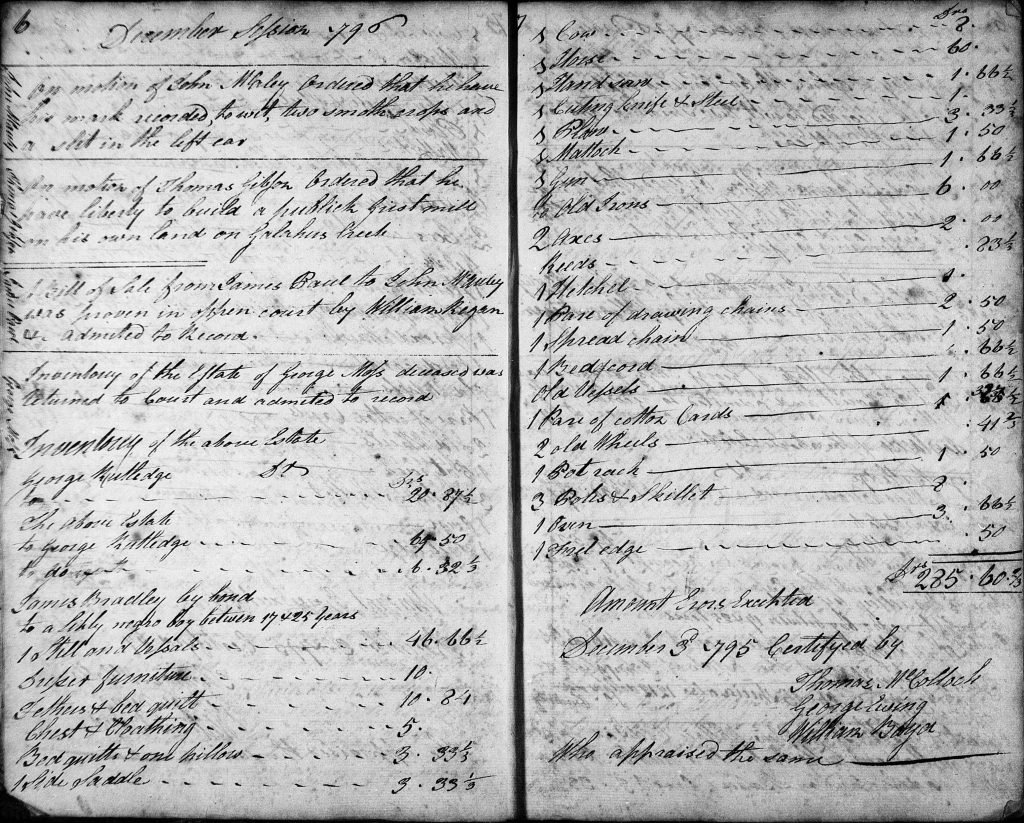 6
December Session 1796
On motion of John McColey Ordered that he have
his mark recorded to wit, two smooth crops and
a slit in the left ear
On motion of Thomas Gibson Ordered that he
have liberty to build a publick Grist mill
on his own land on Galahus Creek
A Bill of Sale from James Paul to John
was proven in oppen court by William Regan
& admitted to Record.
Inventory of the Estate of George Moss deceased was
returned to Court and admitted to record
Inventory of the above Estate
George Rutledge Dr Drs
to 20. 37½
The above Estate
to George Rutledge 69. 50
to do 6. 32⅓
James Bradley by bond
to a likly negro boy between 17 & 25 years
1 Still and Vessals 46. 66½
Dresser furniture 10.
Fethers & bed quilt 10. 84
Chest & Cloathing 5.
Bed quilts & one pillow 3. 33⅓
1 Side Saddle 3. 33⅓
7
Drs
1 Cow 8.
1 Horse 60.
1 Handsaw 1. 66½
1 Cuting knife & Steel 1.
1 Plow 3. 33⅓
1 Mattock 1. 50
1 Gun 1. 66½
to Old Irons 6. 00
2 Axes 2. 00
Reeds . 83½
1 Hetchel 1.
1 Pare of drawing chains 2. 50
1 Spread chain 1. 50
1 Bedscord . 66½
Old Vessels 1. 66½
1 Pare of cotton Cards
2 old Wheels . 41⅔
1 Pot rack 1. 50
3 Pots & Skillet 8.
1 Oven 3. 66½
1 Fueledge . 50
Drs 285. 60⅔
Amount Erors Excepted
December 3d 1795 Certifyed by
Thomas McColloch
George Ewing
William
Who appraised the same